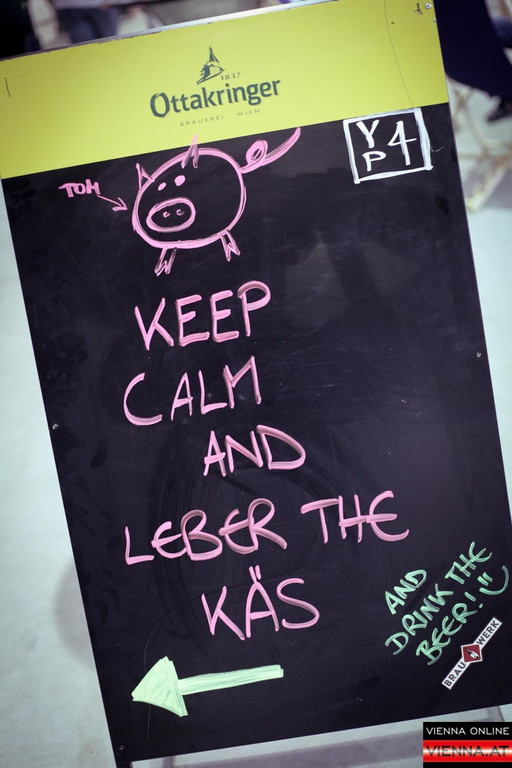 1837
Ottakringer
BRAUEREI WIEN
Y4
P
TOM
KEEP
CALM
AND
LEBER THE
KÄS
AND
DRINK THE
BEER!
BRAU WERK
VIENNA ONLINE
VIENNA.AT